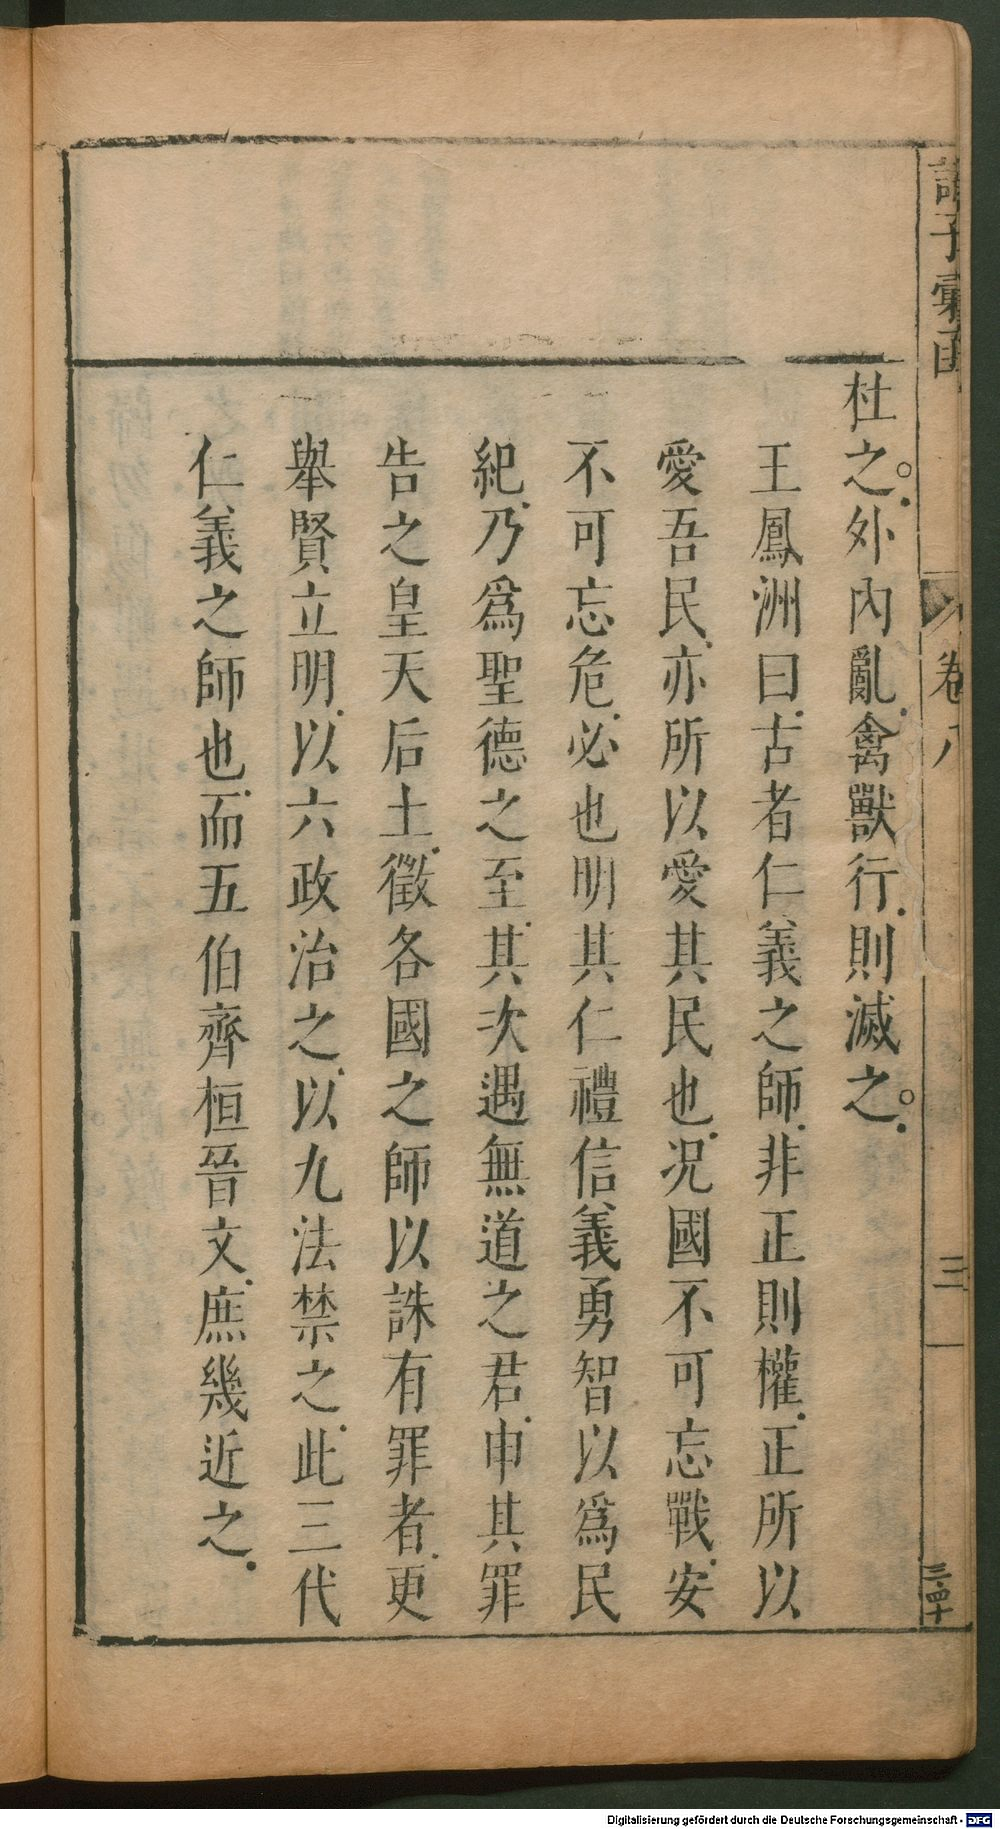 諸子彙函
卷八
三
三四十
杜之外內亂禽獸行則滅之
王鳳洲曰古者仁義之師非正則權正所以
愛吾民亦所以愛其民也况國不可忘戰安
不可忘危必也明其仁禮信義勇智以爲民
紀乃爲聖德之至其次遇無道之君申其罪
告之皇天后土徵各國之師以誅有罪者更
舉賢立明以六政治之以九法禁之此三代
仁義之師也而五伯齊桓晉文庶幾近之
Digitalisierung gefördert durch die Deutsche Forschungsgemeinschaft - DFG